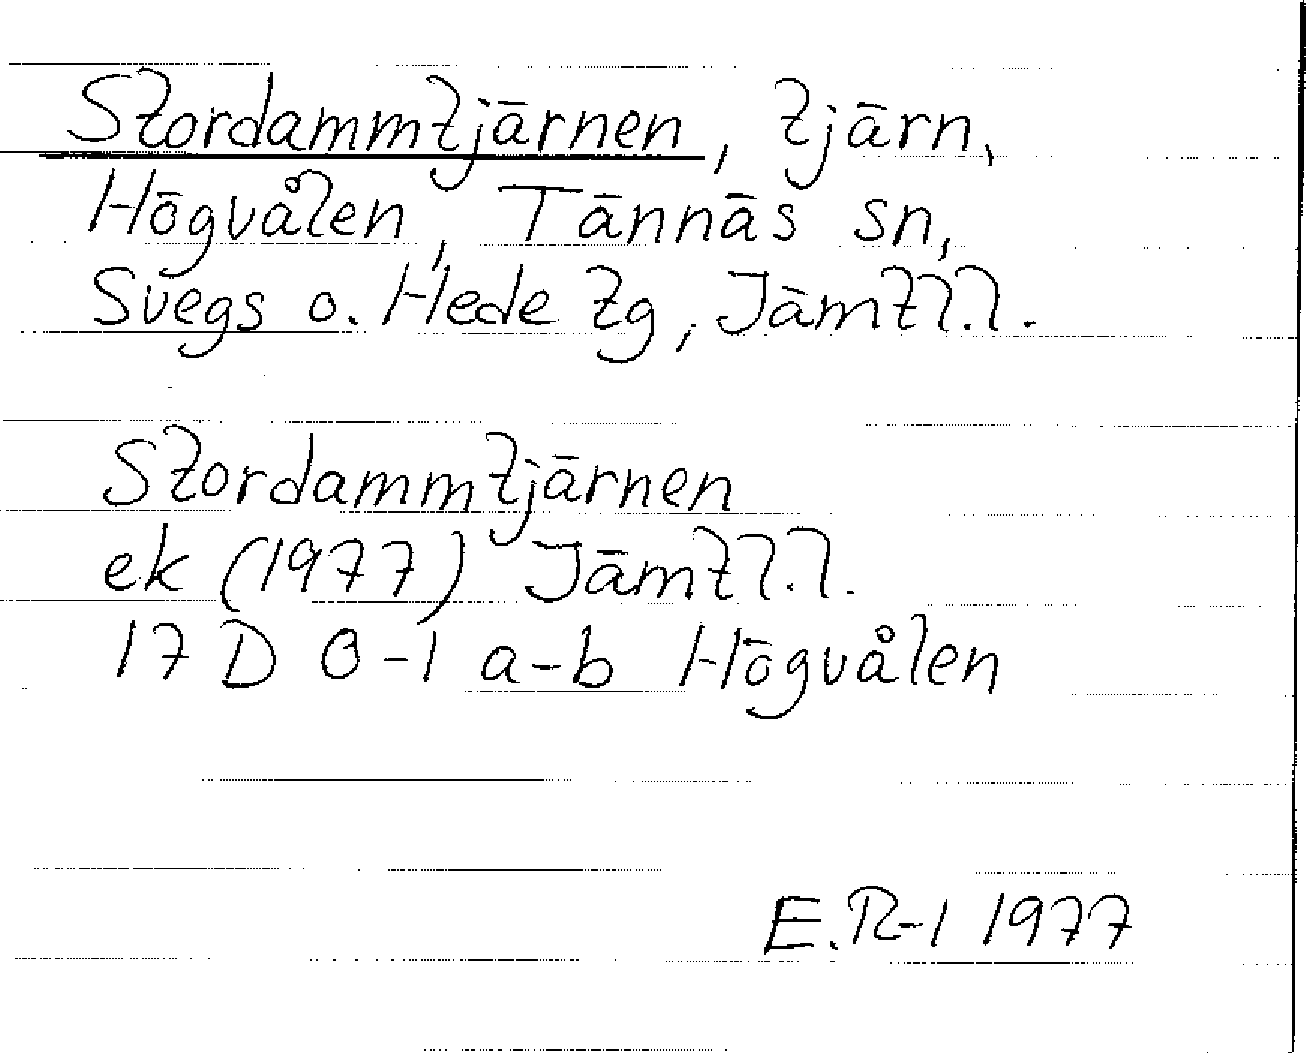 Stordammtjärnen, tjärn,
Högvålen, Tännäs sn,
Svegs o. Hede tg, Jämtl.l.
Stordammtjärnen
ek (1977) Jämtl.l.
17 D 0-1 a-b Högvålen
E.R-l 1977